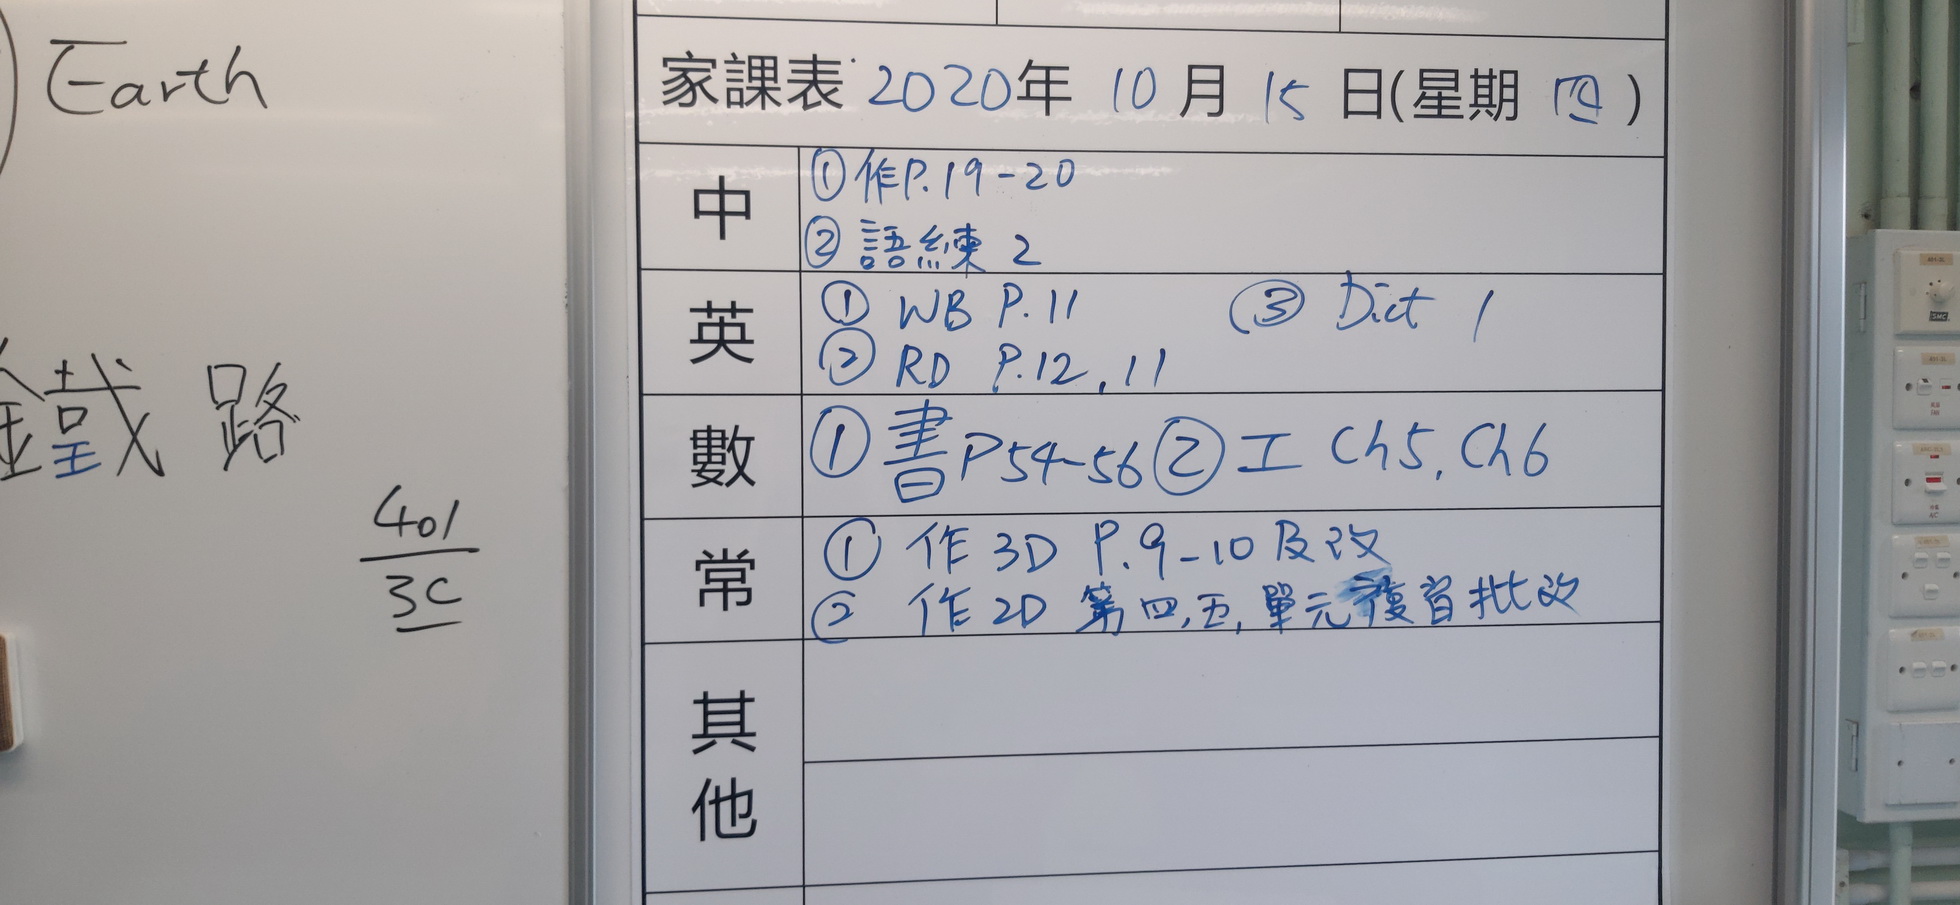 Earth
鐵路
401
3C
家課表 2020年 10月 15日(星期 四)
中
①作P.19-20
②語練 2
英
① WB P.11 ③ Dict 1
② RD P.12, 11
數
①書P54-56 ②工 Ch5, Ch6
常
① 作 3D P.9-10 及改
② 作 2D 第四,五,單元複習批改
其他